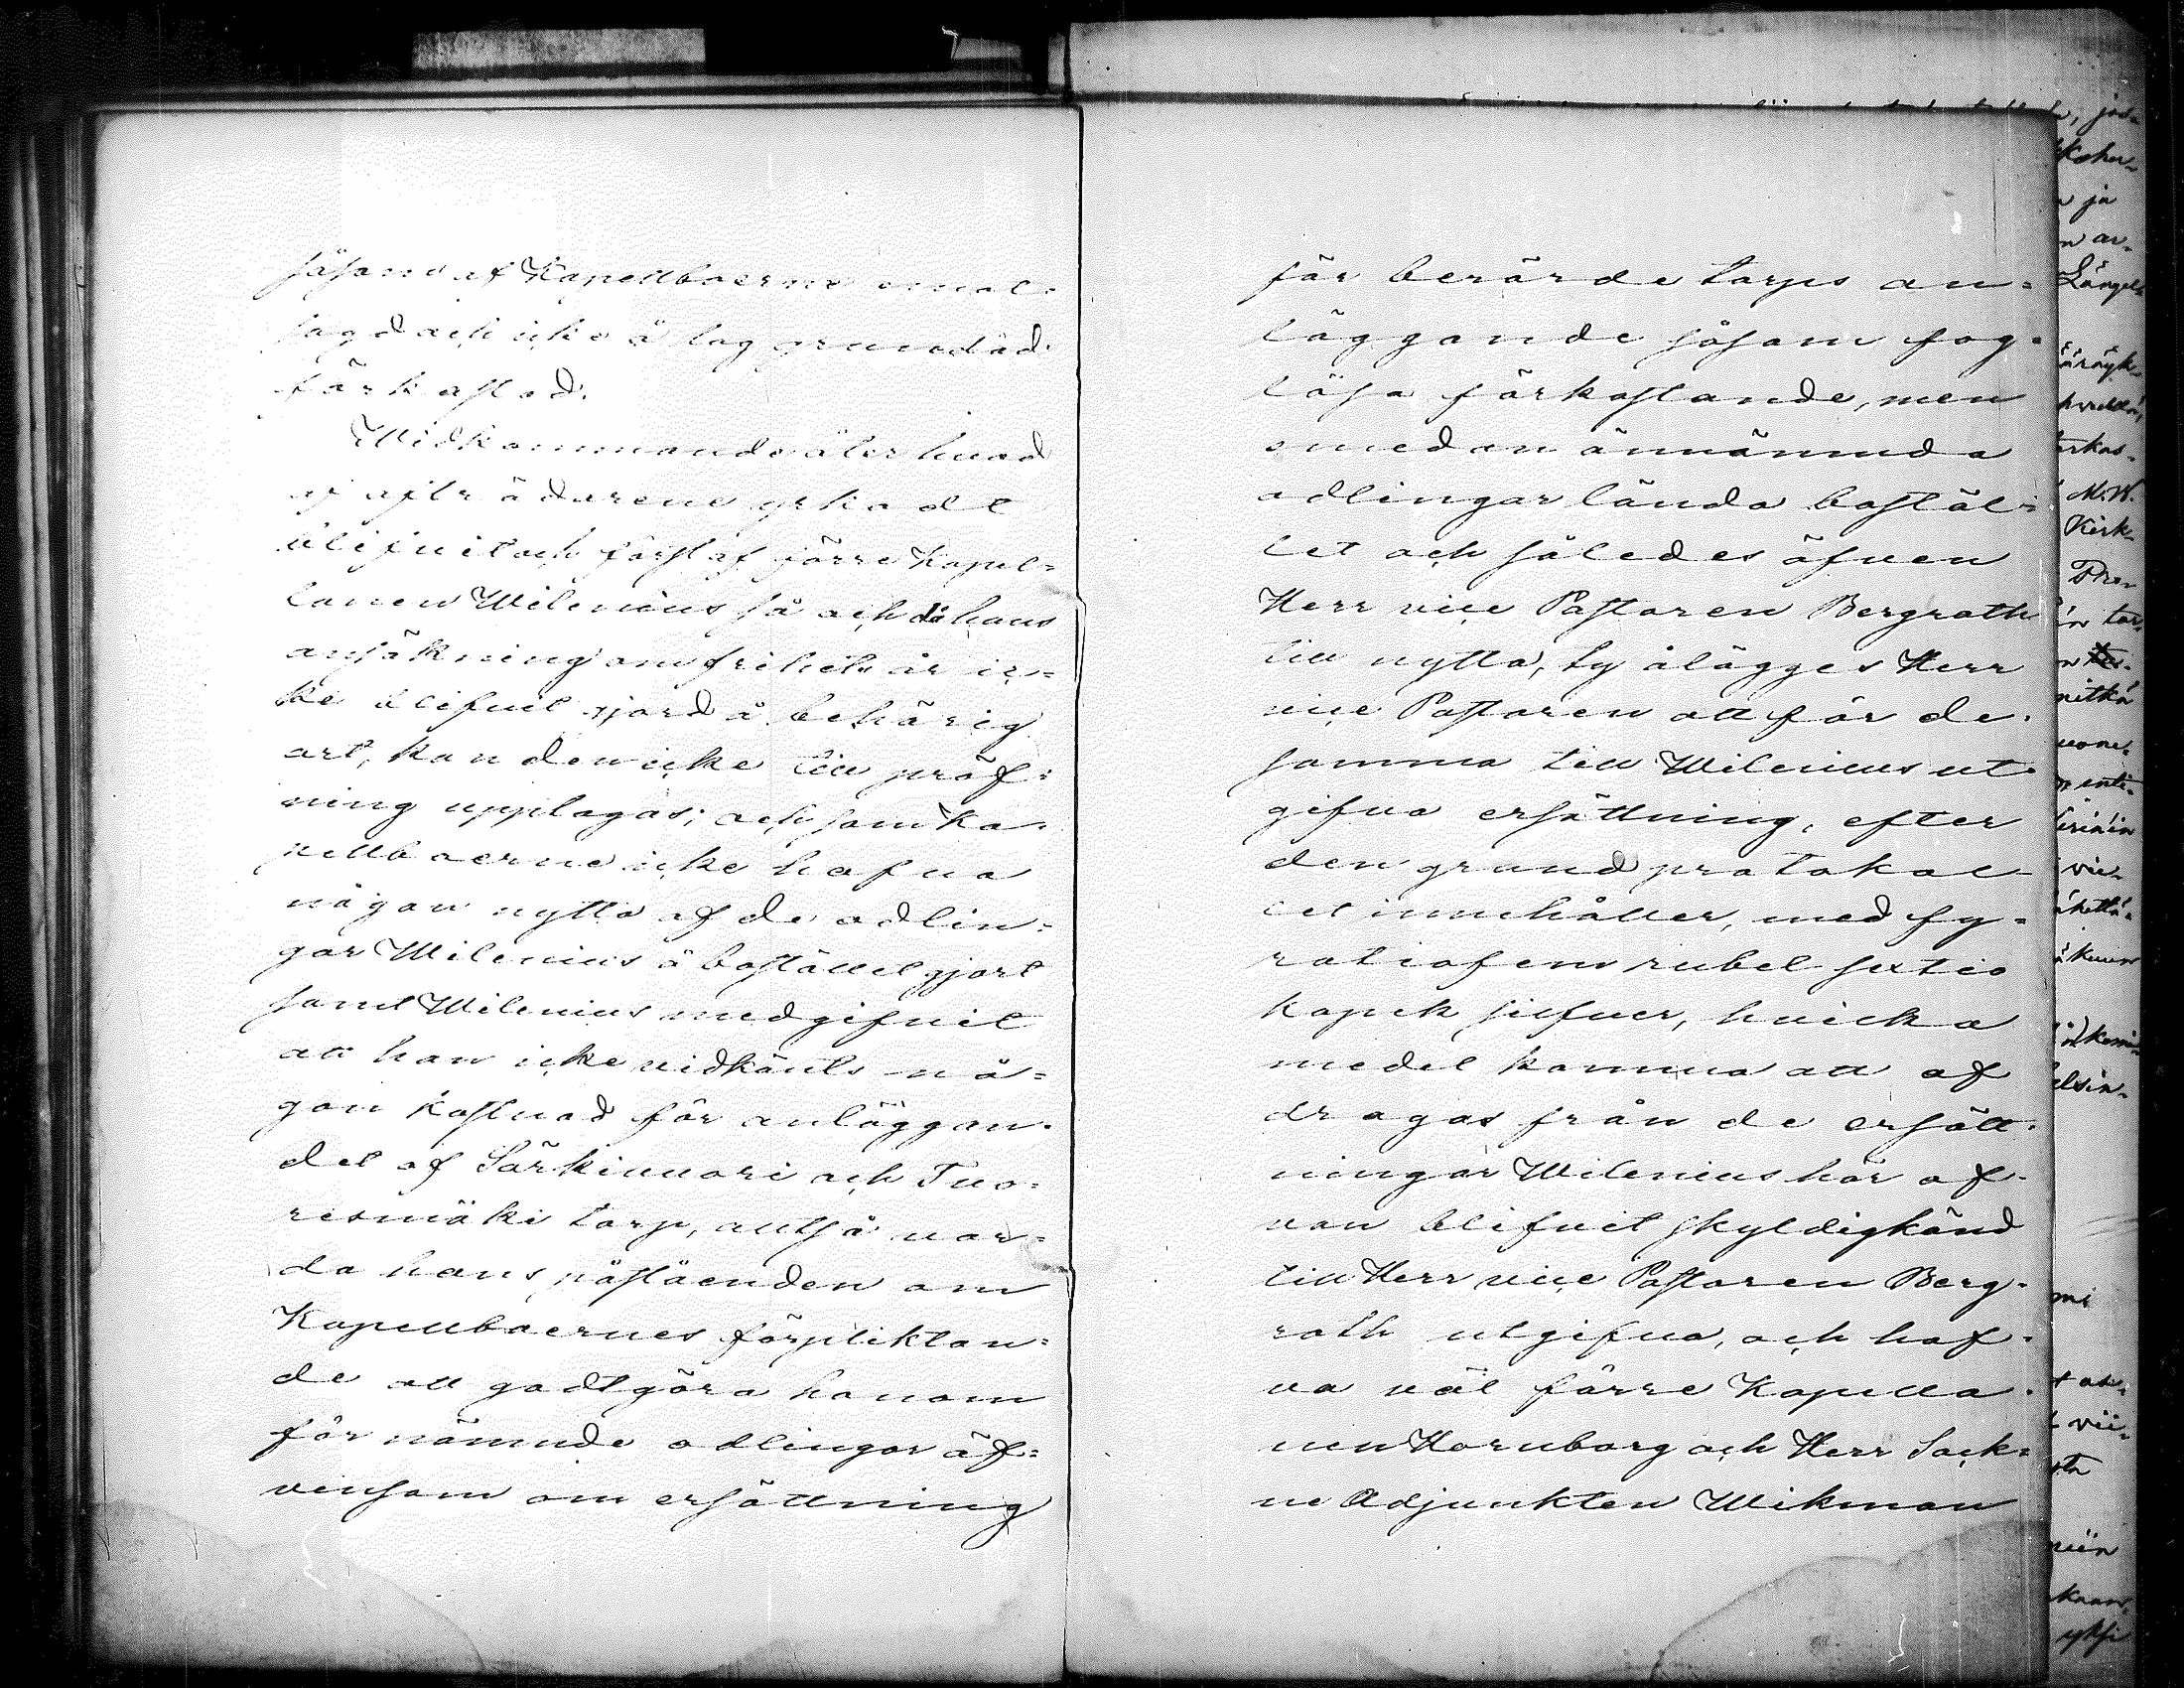 såsom af Kapellboerne emot-
sagd och icke å lag grundad
förkastad.
Widkommande åter hvad
af afträdaren yrkadt
blifvit och först af förre Kapel-
lanen Wilenius så och då hans
ansökning om frihets år ic-
ke blifvit gjord å behörig
ort, kan den icke till pröf-
ning upptagas; och som Ka-
pellboerne icke hafva
någon nytta af de odlin-
gar Wilenius å bostället gjort
samt Wilenius medgifvit
att han icke vidkänts nå-
gon kostnad för anläggan-
det af Särkivuori och Tuo-
resmäki torp, altså var-
da hans påståenden om
Kapellboernes förpliktan-
de att godtgöra honom
för nämnde odlingar äf-
vensom om ersättning
för berörde torps an-
läggande såsom fog-
lösa förkastande, men
emedan ännämnda
odlingar lända bostäl-
let och således äfven
Herr vice Pastoren Bergroth
till nytta, ty ålägges Herr
vice Pastoren att för de-
samma till Wilenius ut
gifva ersättning, efter
den grund protokol-
let innehåller, med fy-
ratiofem rubel sextio
kopek silfver, hvilka
medel komma att af
dragas från de ersätt-
ningar Wilenius här of-
van blifvit skyldigkänd
till Herr vice Pastoren Berg-
roth utgifva, och haf-
va väl förre Kapella-
nen Hornborg och Herr Sock-
ne Adjunkten Wikman